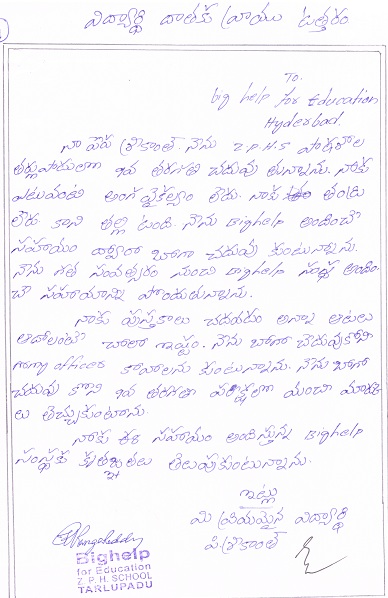 విద్యార్థి దాతకు వ్రాయు ఉత్తరం
To.
big help for Education
Hyderbad.
నా పేరు శ్రీకాంత్. నేను Z.P.H.S పాఠశాల
తర్లుపాడులో 9వ తరగతి చదువు తున్నాను. నాకు
ఎటువంటి అంగ వైకల్యం లేదు. నాకు తండ్రి
లేరు కాని తల్లి ఉంది. నేను Bighelp అందించే
సహాయం ద్వారా బాగా చదువు కుంటున్నాను.
నేను గత సంవత్సరం నుంచి Bighelp సంస్థ అందిం-
చే సహాయాన్ని పొందుతున్నాను.
నాకు పుస్తకాలు చదవడం అన్నా ఆటలు
ఆడాలంటే చాలా ఇష్టం. నేను బాగా చదువుకొని
Army officer కావాలను కుంటున్నాను. నేను బాగా
చదువు కొని 9వ తరగతి పరీక్షలో మంచి మార్కు
లు తెచ్చుకుంటాను.
నాకు ఈ సహాయం అందిస్తున్న Bighelp
సంస్థకు కృతజ్ఞతలు తెలుపుకుంటున్నాను.
ఇట్లు
మీ ప్రియమైన విద్యార్థి
పి. శ్రీకాంత్
Bighelp
for Education
Z. P. H. SCHOOL
TARLUPADU